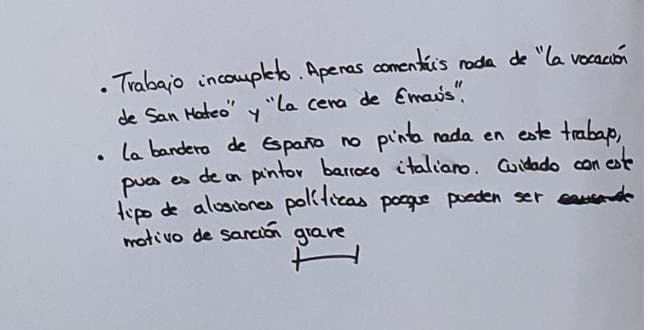 • Trabajo incompleto. Apenas comentáis nada de "la vocación
de San Mateo" y "La cena de Emaús".
• La bandera de España no pinta nada en este trabajo,
pues es de un pintor barroco italiano. Cuidado con este
tipo de alusiones políticas porque pueden ser causa de
motivo de sanción grave